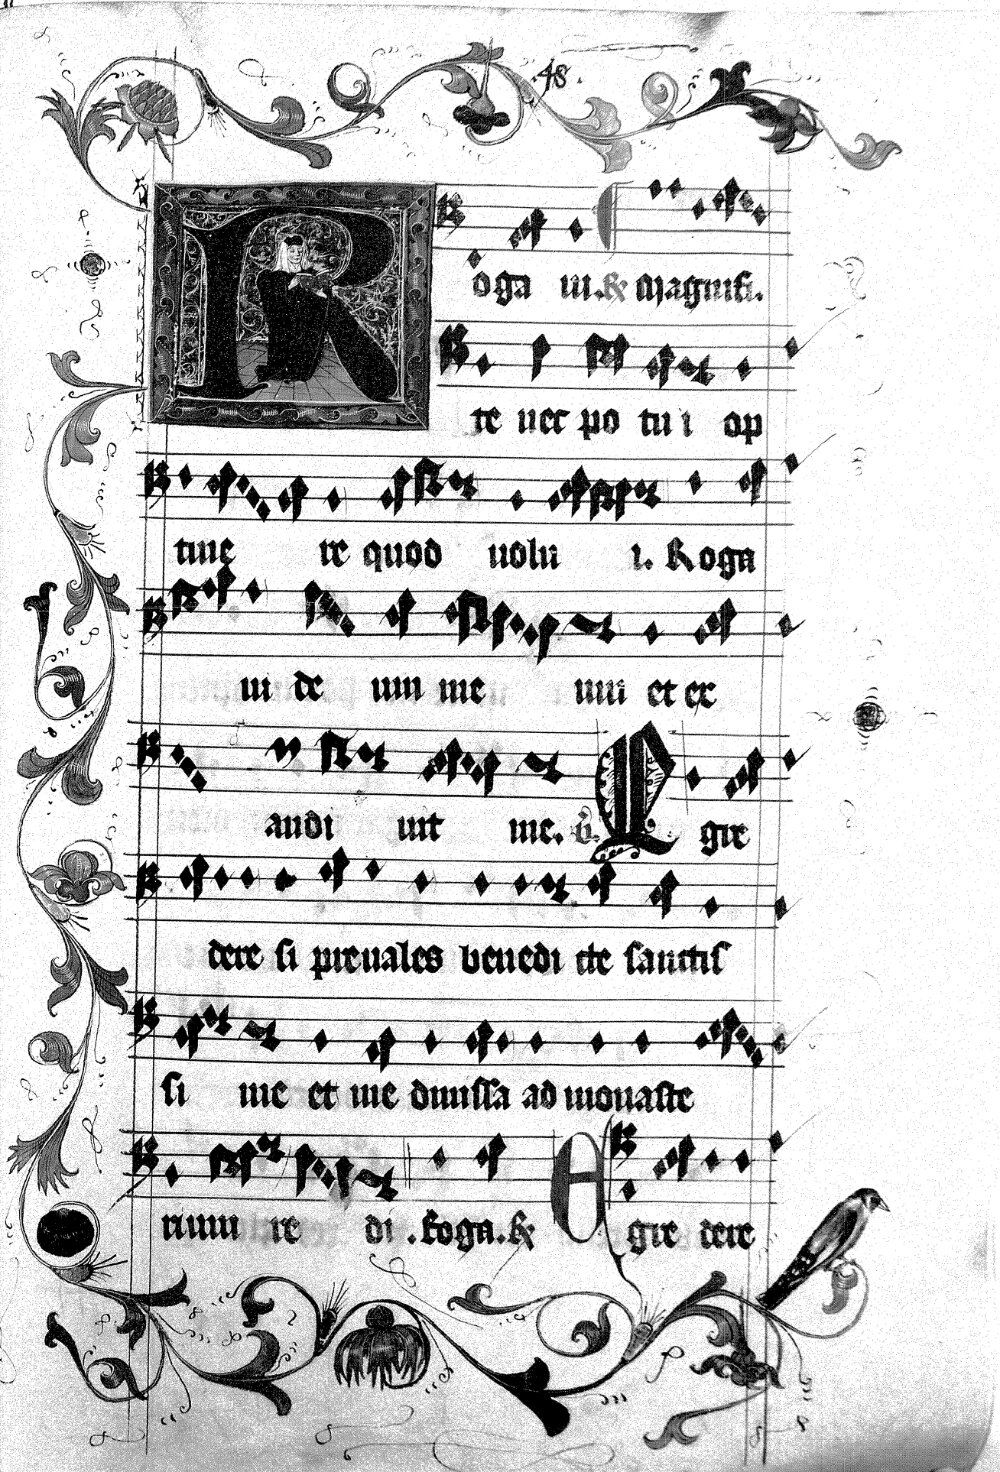 .48.
R oga ui. & Magnifi.
re nec po tu i op
tine re quod uolu i. Roga
ui de um me um et ex
audi uit me. V. Egre
dere si preuales benedi cte sanctis
si me et me dimissa ad monaste
rium re di . Roga. & Egre dere